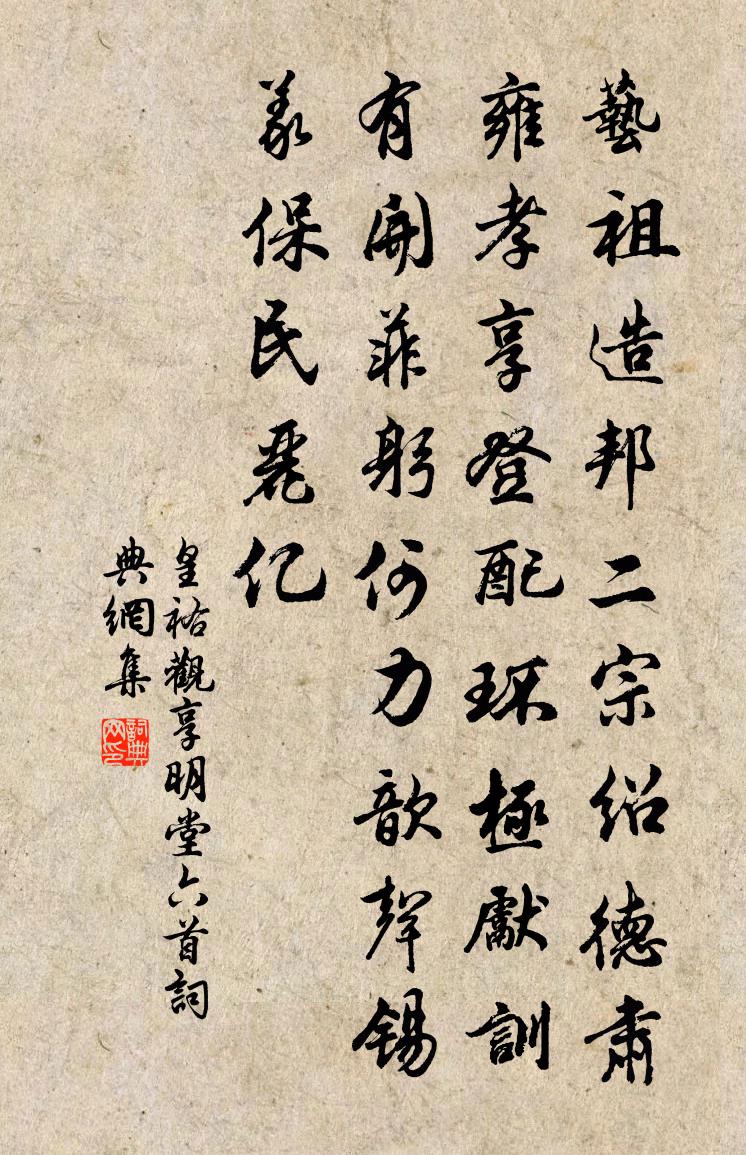 藝祖造邦二宗紹德肅
雍孝享登配环極獻訓
有開菲躬何力歆聲錫
羕保民麗亿
皇祐觀享明堂六首詞
典網集
詞典
网印